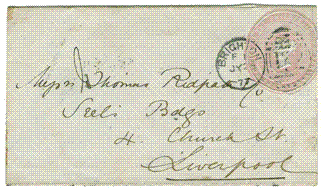 BRIGHTON
F
JY
77
Messrs Thomas Ridpath & Co
Seel's Bdgs
4. Church St.
Liverpool